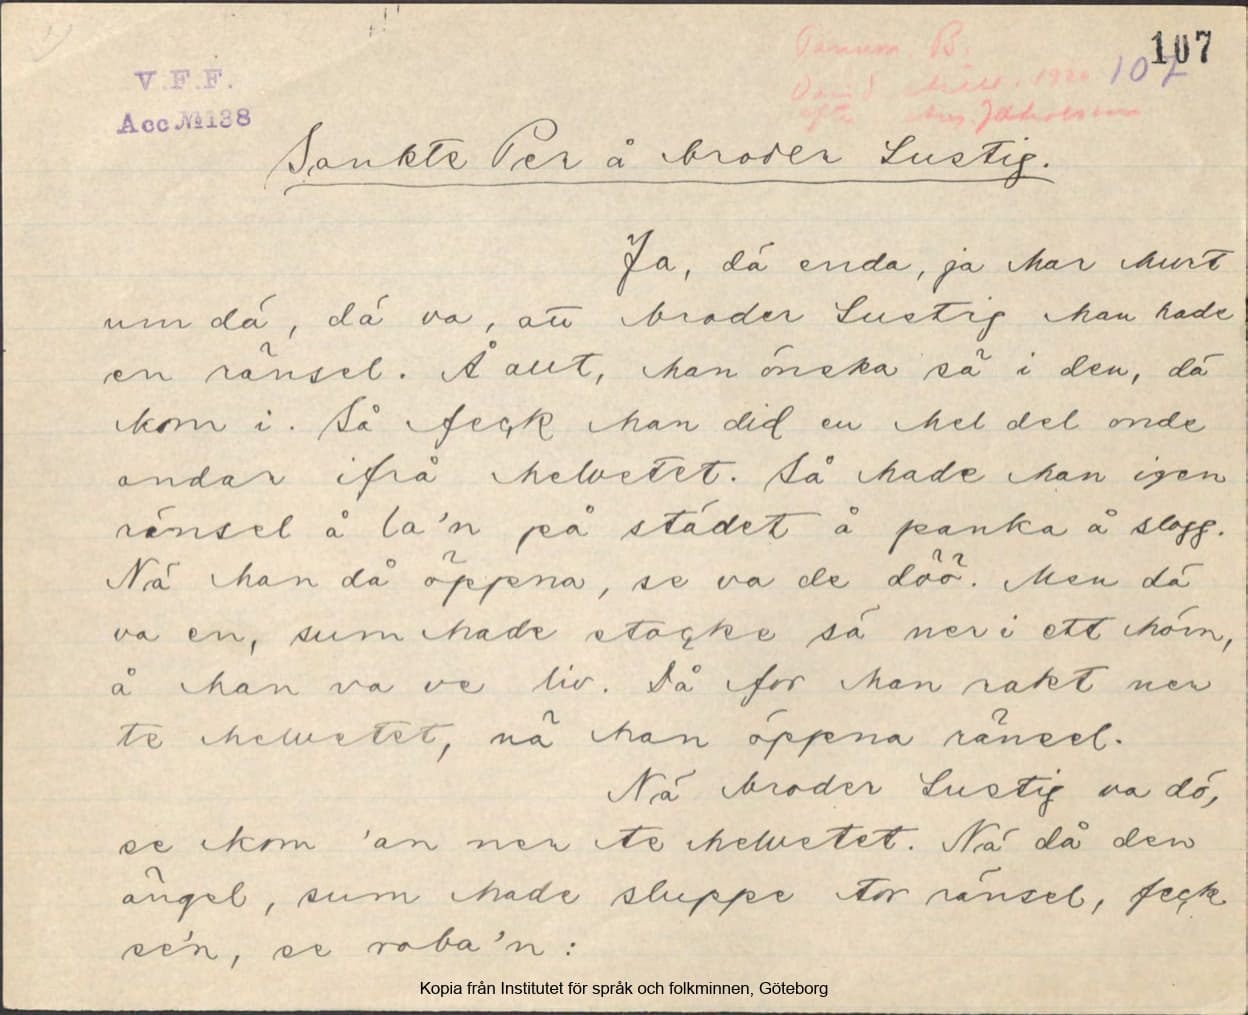 107
V.F.F.
Acc №138
Tanum B.
107
1920
efter
Sankte Per å broder Lustig.
Ja, dá enda, ja har hurt
um dá, dá va, att broder Lustig han hade
en ränsel. Å allt, han önska sä i den, dá
kom i. Så feck han did en hel del onde
andar ifrå helvetet. Så hade han igen
ränsel å la'n på städet å panka å slogg.
Ná han då öppna, se va de döö. Men dá
va en, sum hade stacke sá ner i ett hörn,
å han va ve liv. Då for han rakt ner
te helvetet, nä han öppna ränsel.
Ná broder Lustig va dö,
se kom 'an ner te helvetet. Ná då den
ängel, sum hade sluppe tor ränsel, feck
se'n, se roba'n :
Kopia från Institutet för språk och folkminnen, Göteborg